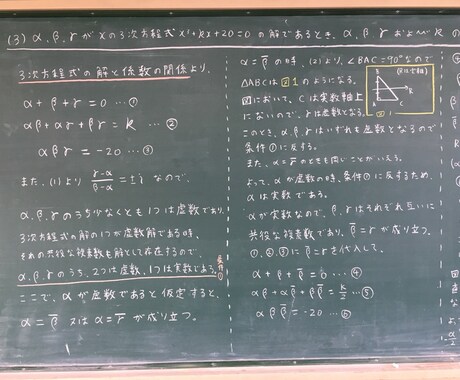 (3) α, β, γ が xの3次方程式 x³+kx+20=0 の解であるとき、α, β, γ および k の
3次方程式の解と係数の関係より、
α+β+γ=0 …①
αβ+αγ+βγ=k …②
αβγ=-20 …③
また、(1)より (γ-α)/(β-α)=±i なので、
α, β, γのうち少なくとも1つは虚数であり、
3次方程式の解の1つが虚数である時、
それの共役な複素数も解として存在するので、
α, β, γのうち、2つは虚数、1つは実数である。 条件①
ここで、αが虚数であると仮定すると、
α=β̄ 又は α=γ̄ が成り立つ。
α=β̄ の時、(2)より、∠BAC=90°なので
△ABCは図1のようになる。
図において、Cは実数軸上
にないので、γは虚数となる。
このとき、α, β, γはいずれも虚数となるので
条件①に反する。
また、α=γ̄のときも同じことがいえる。
よって、αが虚数の時、条件①に反するため、
αは実数である。
αが実数なので、β, γはそれぞれ互いに
共役な複素数であり、β̄=γ が成り立つ。
①, ②, ③に β̄=γ を代入して、
α+β+β̄=0 …④
αβ+αβ̄+ββ̄=k …⑤
αββ̄=-20 …⑥
B
A
C
R
図1